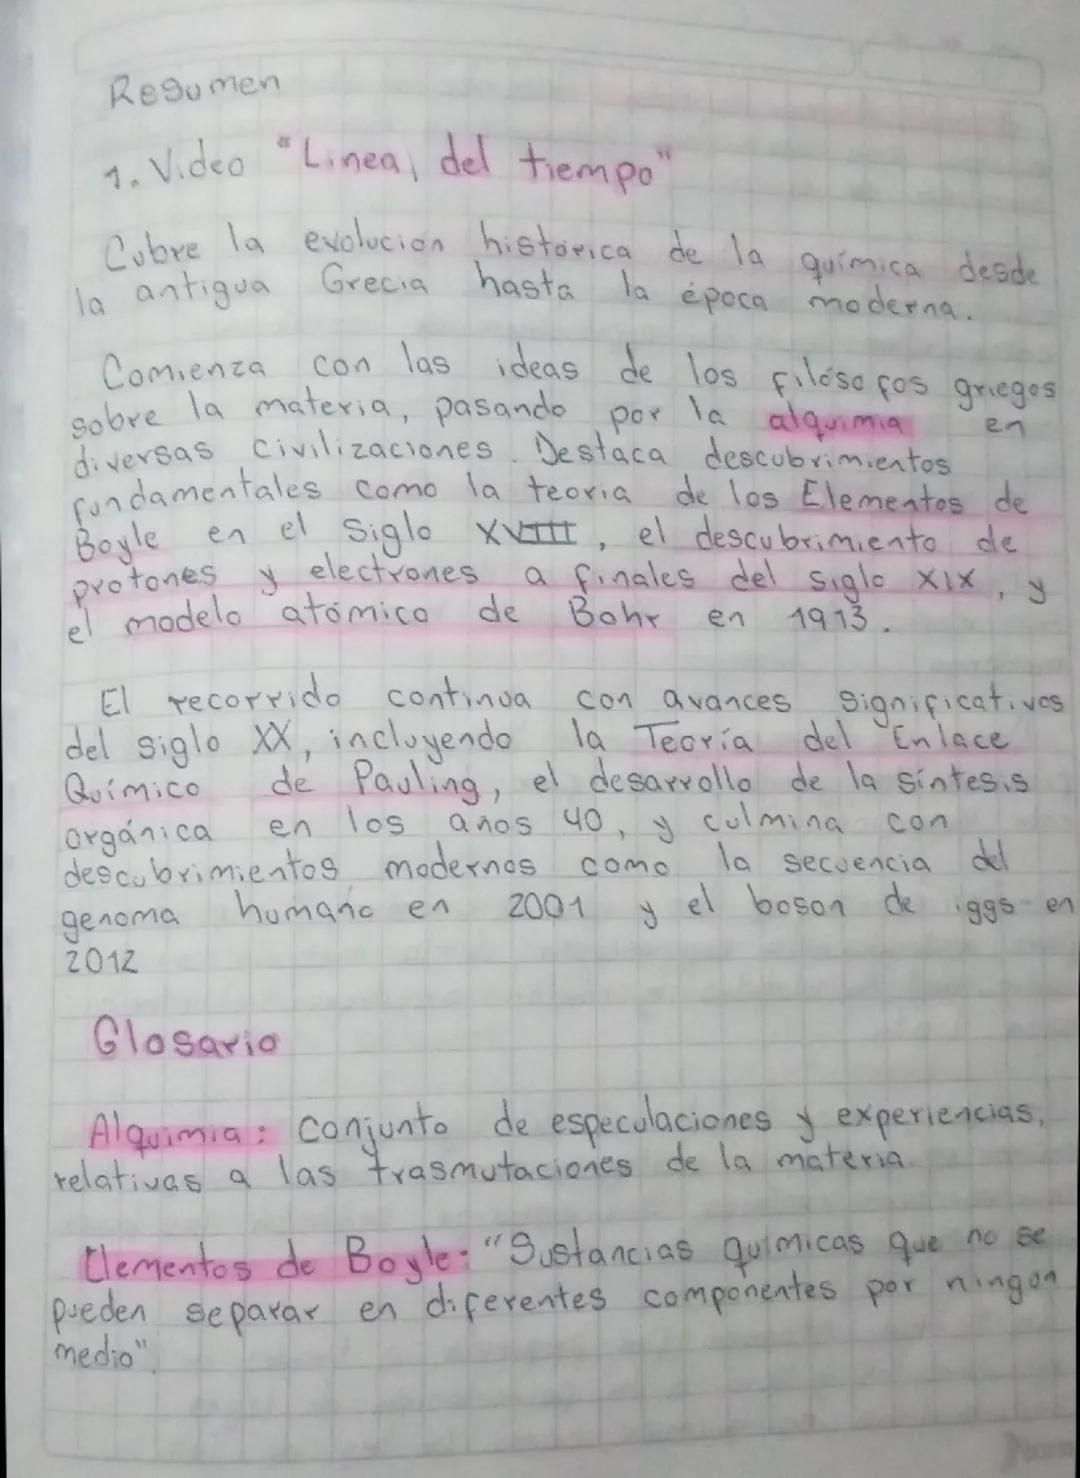 Resumen
1. Video "Linea, del tiempo"
Cubre la evolución histórica de la química desde
la antigua Grecia hasta la época moderna.
Comienza con las ideas de los filósofos griegos
sobre la materia, pasando por la alquimia en
diversas civilizaciones. Destaca descubrimientos
fundamentales como la teoria de los Elementos de
Boyle en el siglo XVIII, el descubrimiento de
protones y electrones a finales del siglo XIX, y
el modelo atómico de Bohr en 1913.
El recorrido continua con avances significativos
del siglo XX, incluyendo la Teoría del Enlace
Químico de Pauling, el desarrollo de la síntesis
orgánica en los años 40, y culmina con
descubrimientos modernos como la secuencia del
genoma humano en 2001 y el boson de iggs en
2012
Glosario
Alquimia: conjunto de especulaciones y experiencias,
relativas a las trasmutaciones de la materia
Elementos de Boyle: "Sustancias químicas que no se
pueden separar en diferentes componentes por ningun
medio".